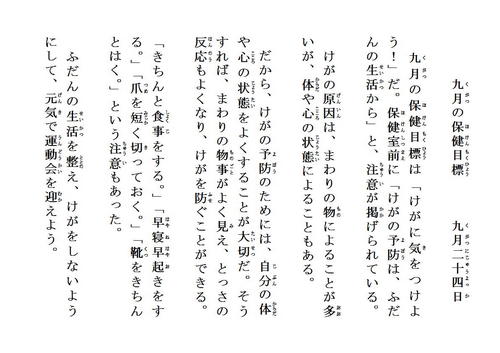 九月の保健目標　　　九月二十四日
九月の保健目標は「けがに気をつけよ
う！」だ。保健室前に「けがの予防は、ふだ
んの生活から」と、注意が掲げられている。
けがの原因は、まわりの物によることが多
いが、体や心の状態によることもある。
だから、けがの予防のためには、自分の体
や心の状態をよくすることが大切だ。そう
すれば、まわりの物事がよく見え、とっさの
反応もよくなり、けがを防ぐことができる。
「きちんと食事をする。」「早寝早起きをす
る。」「爪を短く切っておく。」「靴をきちん
とはく。」という注意もあった。
ふだんの生活を整え、けがをしないよう
にして、元気で運動会を迎えよう。